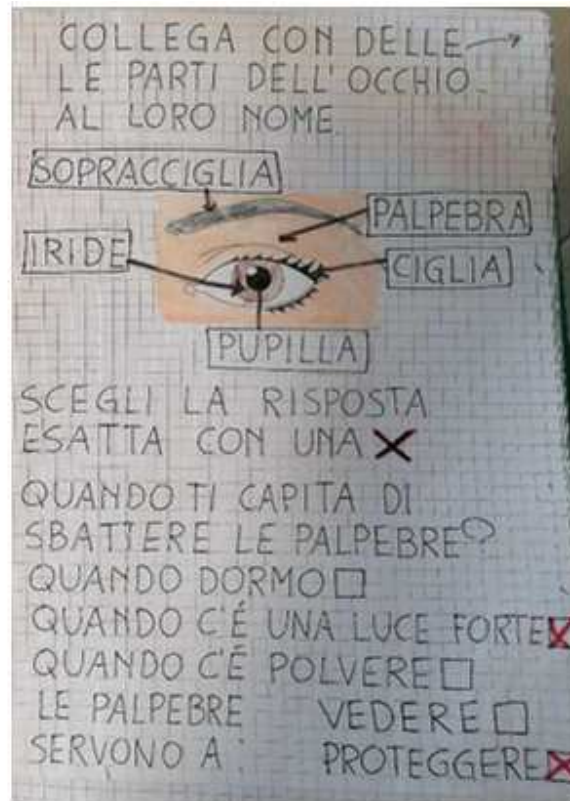 COLLEGA CON DELLE →
LE PARTI DELL'OCCHIO
AL LORO NOME
SOPRACCIGLIA
PALPEBRA
IRIDE
CIGLIA
PUPILLA
SCEGLI LA RISPOSTA
ESATTA CON UNA X
QUANDO TI CAPITA DI
SBATTERE LE PALPEBRE?
QUANDO DORMO ☐
QUANDO C'É UNA LUCE FORTE ☒
QUANDO C'É POLVERE ☐
LE PALPEBRE VEDERE ☐
SERVONO A: PROTEGGERE ☒